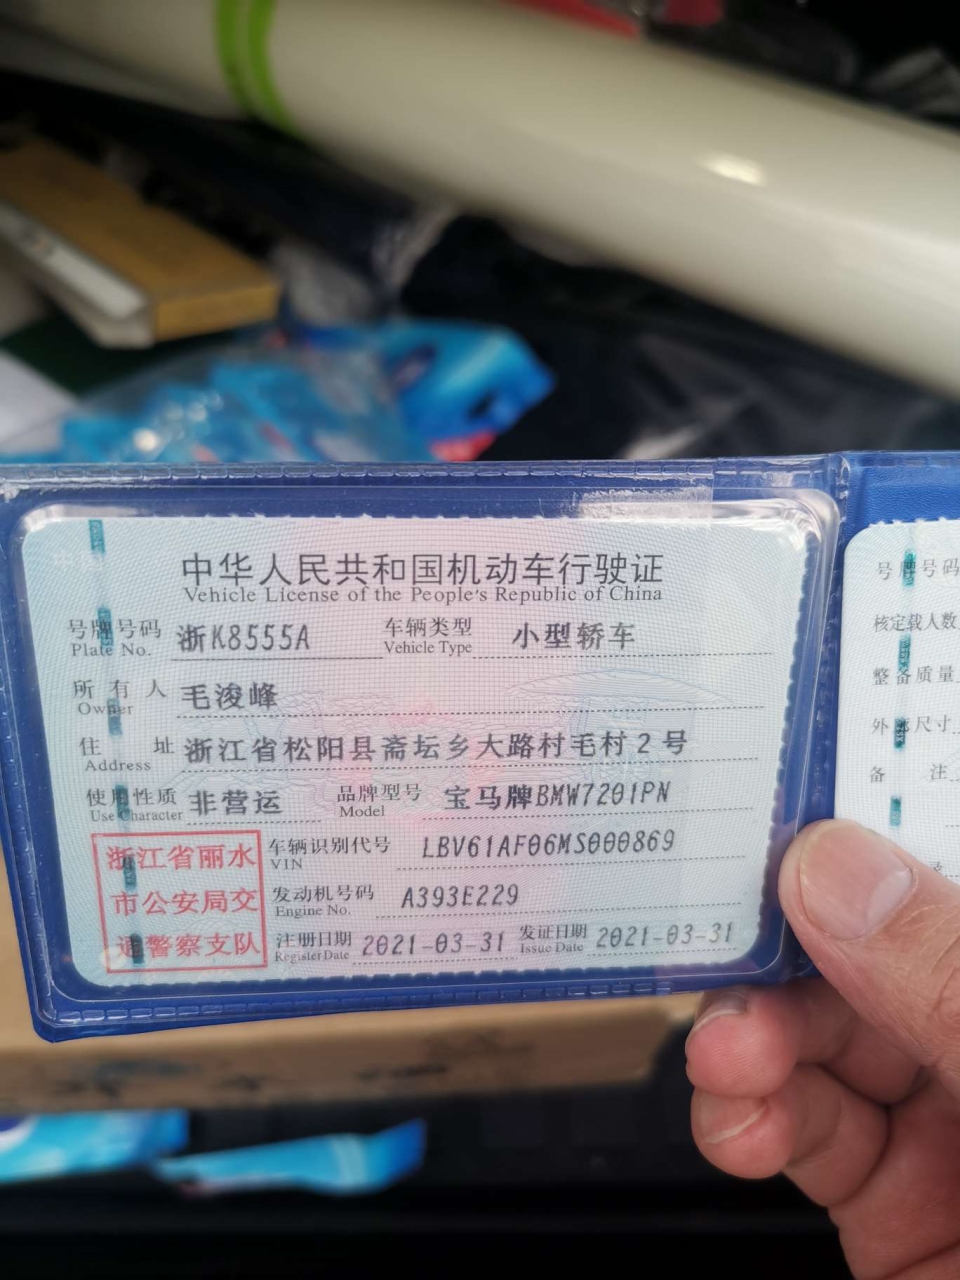 中华人民共和国机动车行驶证
Vehicle License of the People's Republic of China
号牌号码 浙K8555A 车辆类型 小型轿车
Plate No. Vehicle Type
所有人 毛浚峰
Owner
住址 浙江省松阳县斋坛乡大路村毛村2号
Address
使用性质 非营运 品牌型号 宝马牌BMW7201PN
Use Character Model
浙江省丽水
市公安局交
通警察支队
车辆识别代号 LBV61AF06MS000869
VIN
发动机号码 A393E229
Engine No.
注册日期 2021-03-31 发证日期 2021-03-31
Register Date Issue Date
号牌号码
核定载人数
整备质量
外廓尺寸
备注